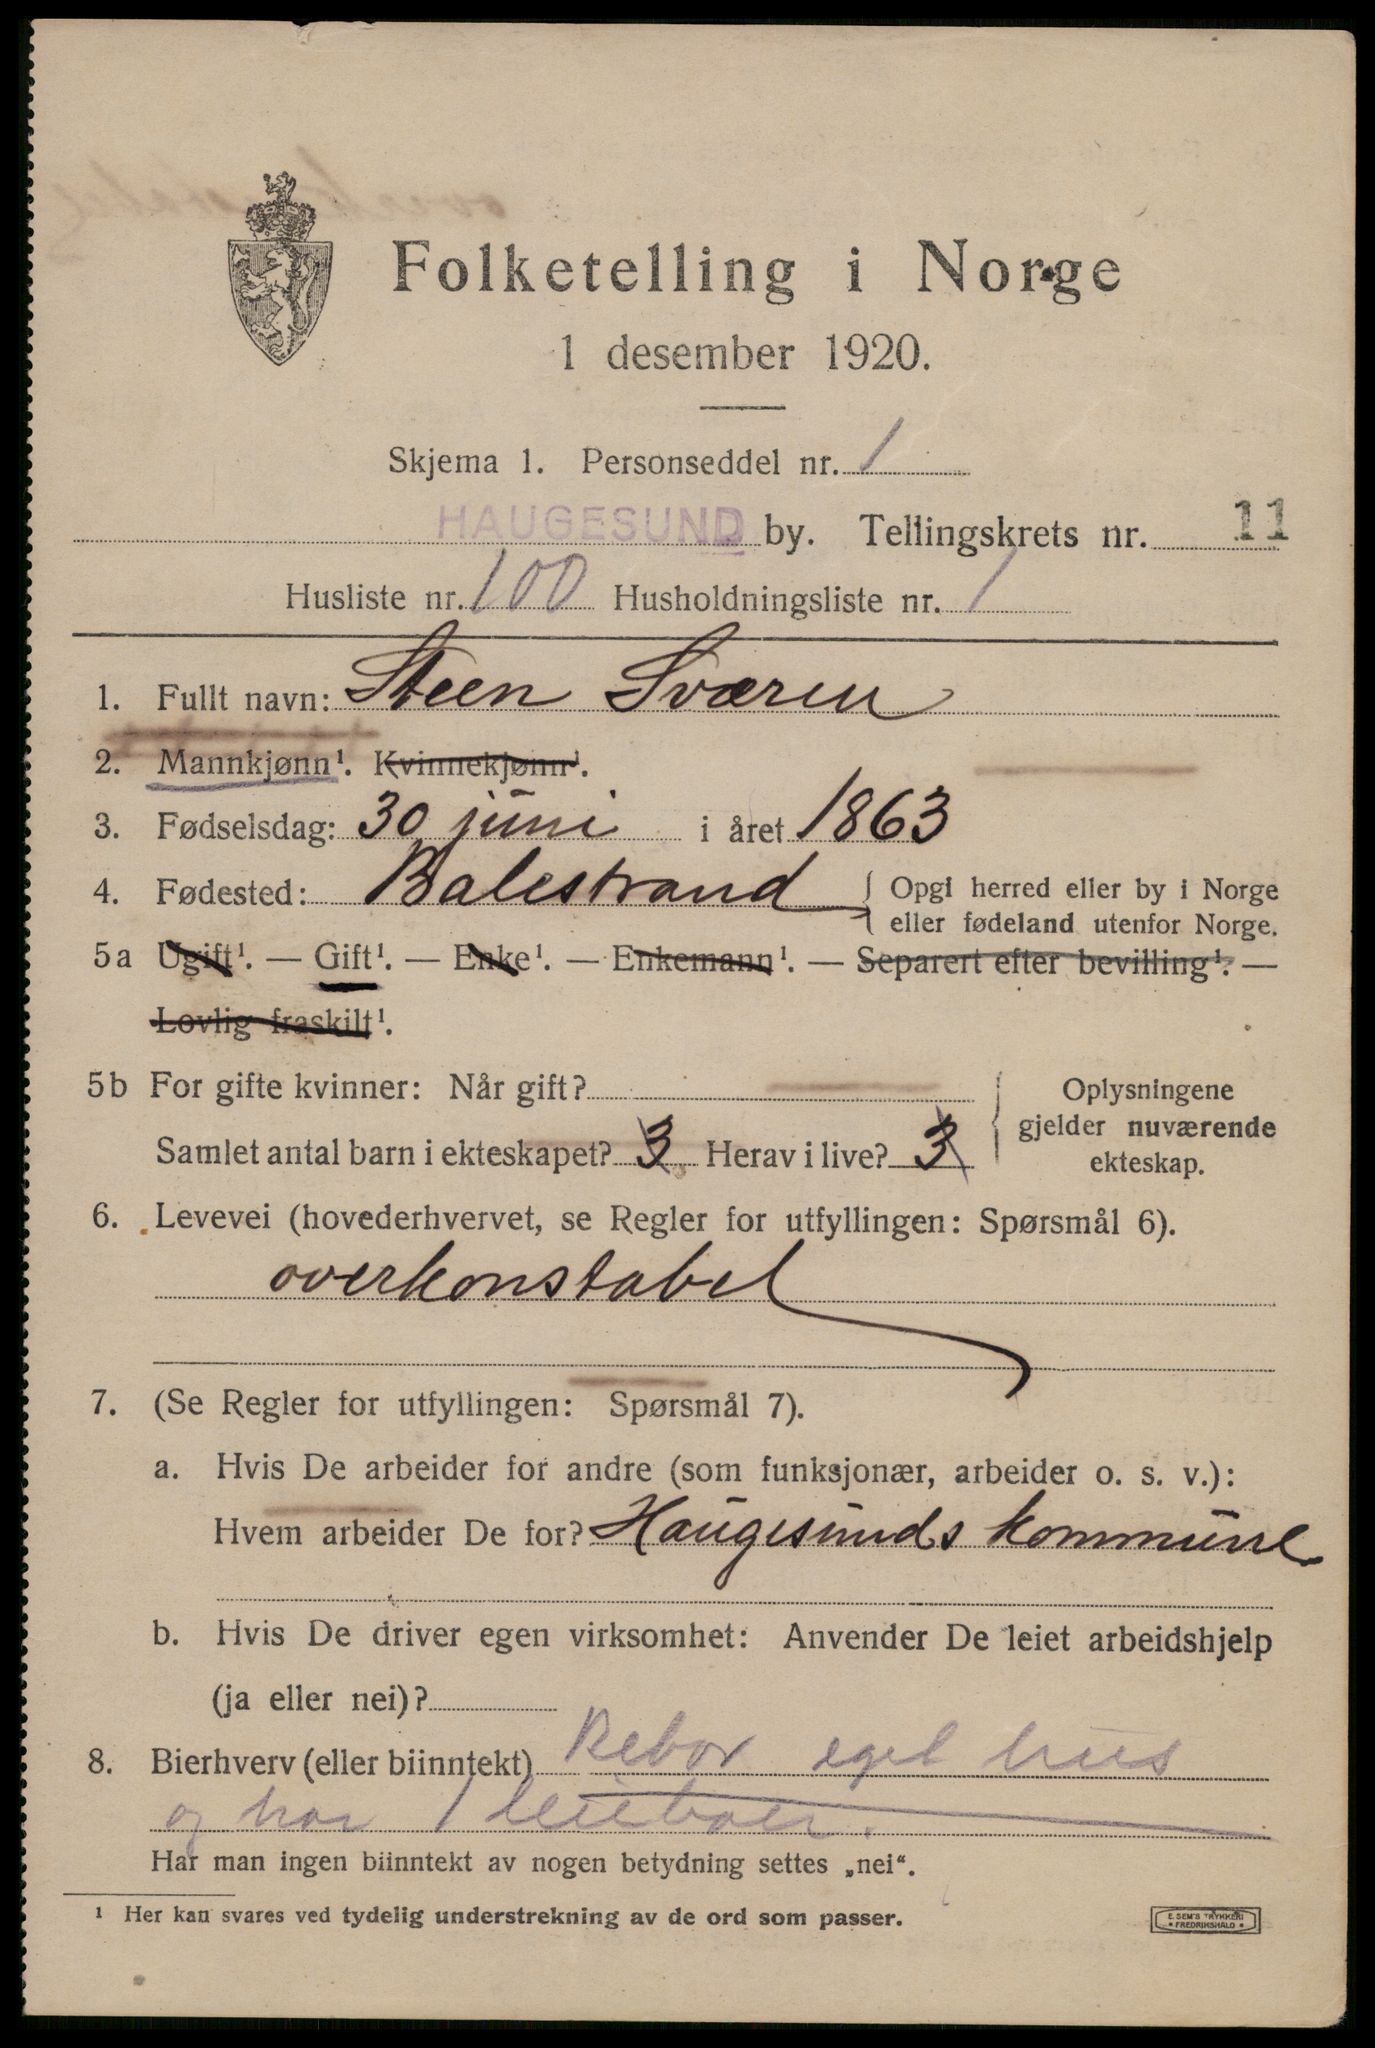 Folketelling i Norge
1 desember 1920.
Skjema 1. Personseddel nr. 1
HAUGESUND by. Tellingskrets nr. 11
Husliste nr. 100 Husholdningsliste nr. 1
1. Fullt navn: Steen Sværen
2. Mannkjønn¹. Kvinnekjønn¹.
3. Fødselsdag: 30 juni i året 1863
4. Fødested: Balestrand { Opgi herred eller by i Norge
eller fødeland utenfor Norge.
5a Ugift¹. — Gift¹. — Enke¹. — Enkemann¹. — Separert efter bevilling¹. —
Lovlig fraskilt¹.
5b For gifte kvinner: Når gift? { Oplysningene
gjelder nuværende
Samlet antal barn i ekteskapet? 3 Herav i live? 3
ekteskap.
6. Levevei (hovederhvervet, se Regler for utfyllingen: Spørsmål 6).
overkonstabel
7. (Se Regler for utfyllingen: Spørsmål 7).
a. Hvis De arbeider for andre (som funksjonær, arbeider o. s. v.):
Hvem arbeider De for? Haugesunds kommune
b. Hvis De driver egen virksomhet: Anvender De leiet arbeidshjelp
(ja eller nei)?
8. Bierhverv (eller biinntekt) Bebor eget hus
og har 1 leieboer.
Har man ingen biinntekt av nogen betydning settes „nei“.
¹ Her kan svares ved tydelig understrekning av de ord som passer.
E. SEM'S TRYKKERI
* FREDRIKSHALD *